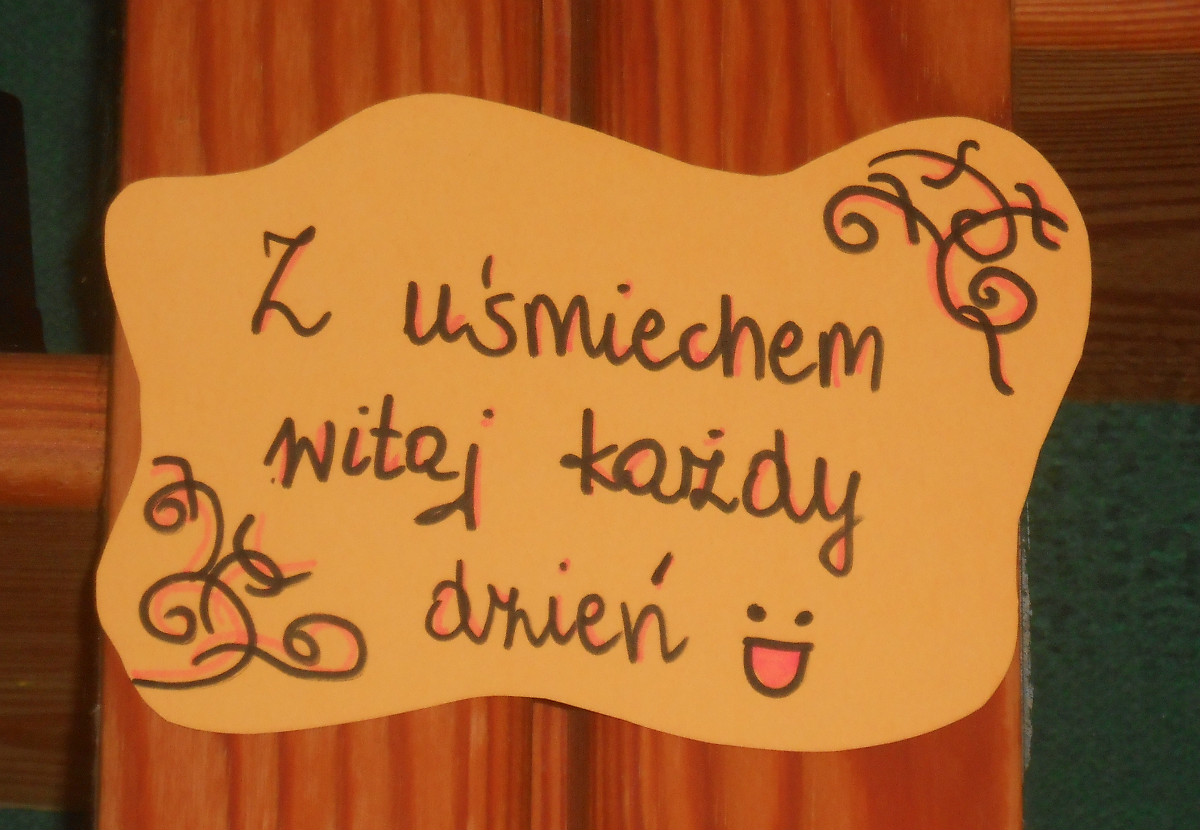 Z uśmiechem
witaj każdy
dzień